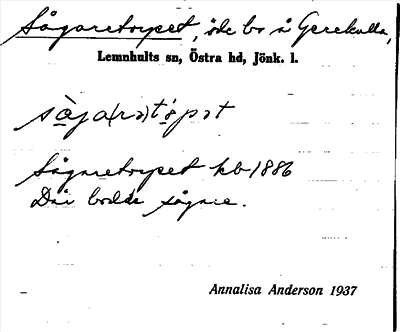 Sågaretorpet, öde bo å Gerekulla,
Lemnhults sn, Östra hd, Jönk. l.
såga(rə)tòrpət
Sågaretorpet kb 1886
Där bodde sågare.
Annalisa Anderson 1937